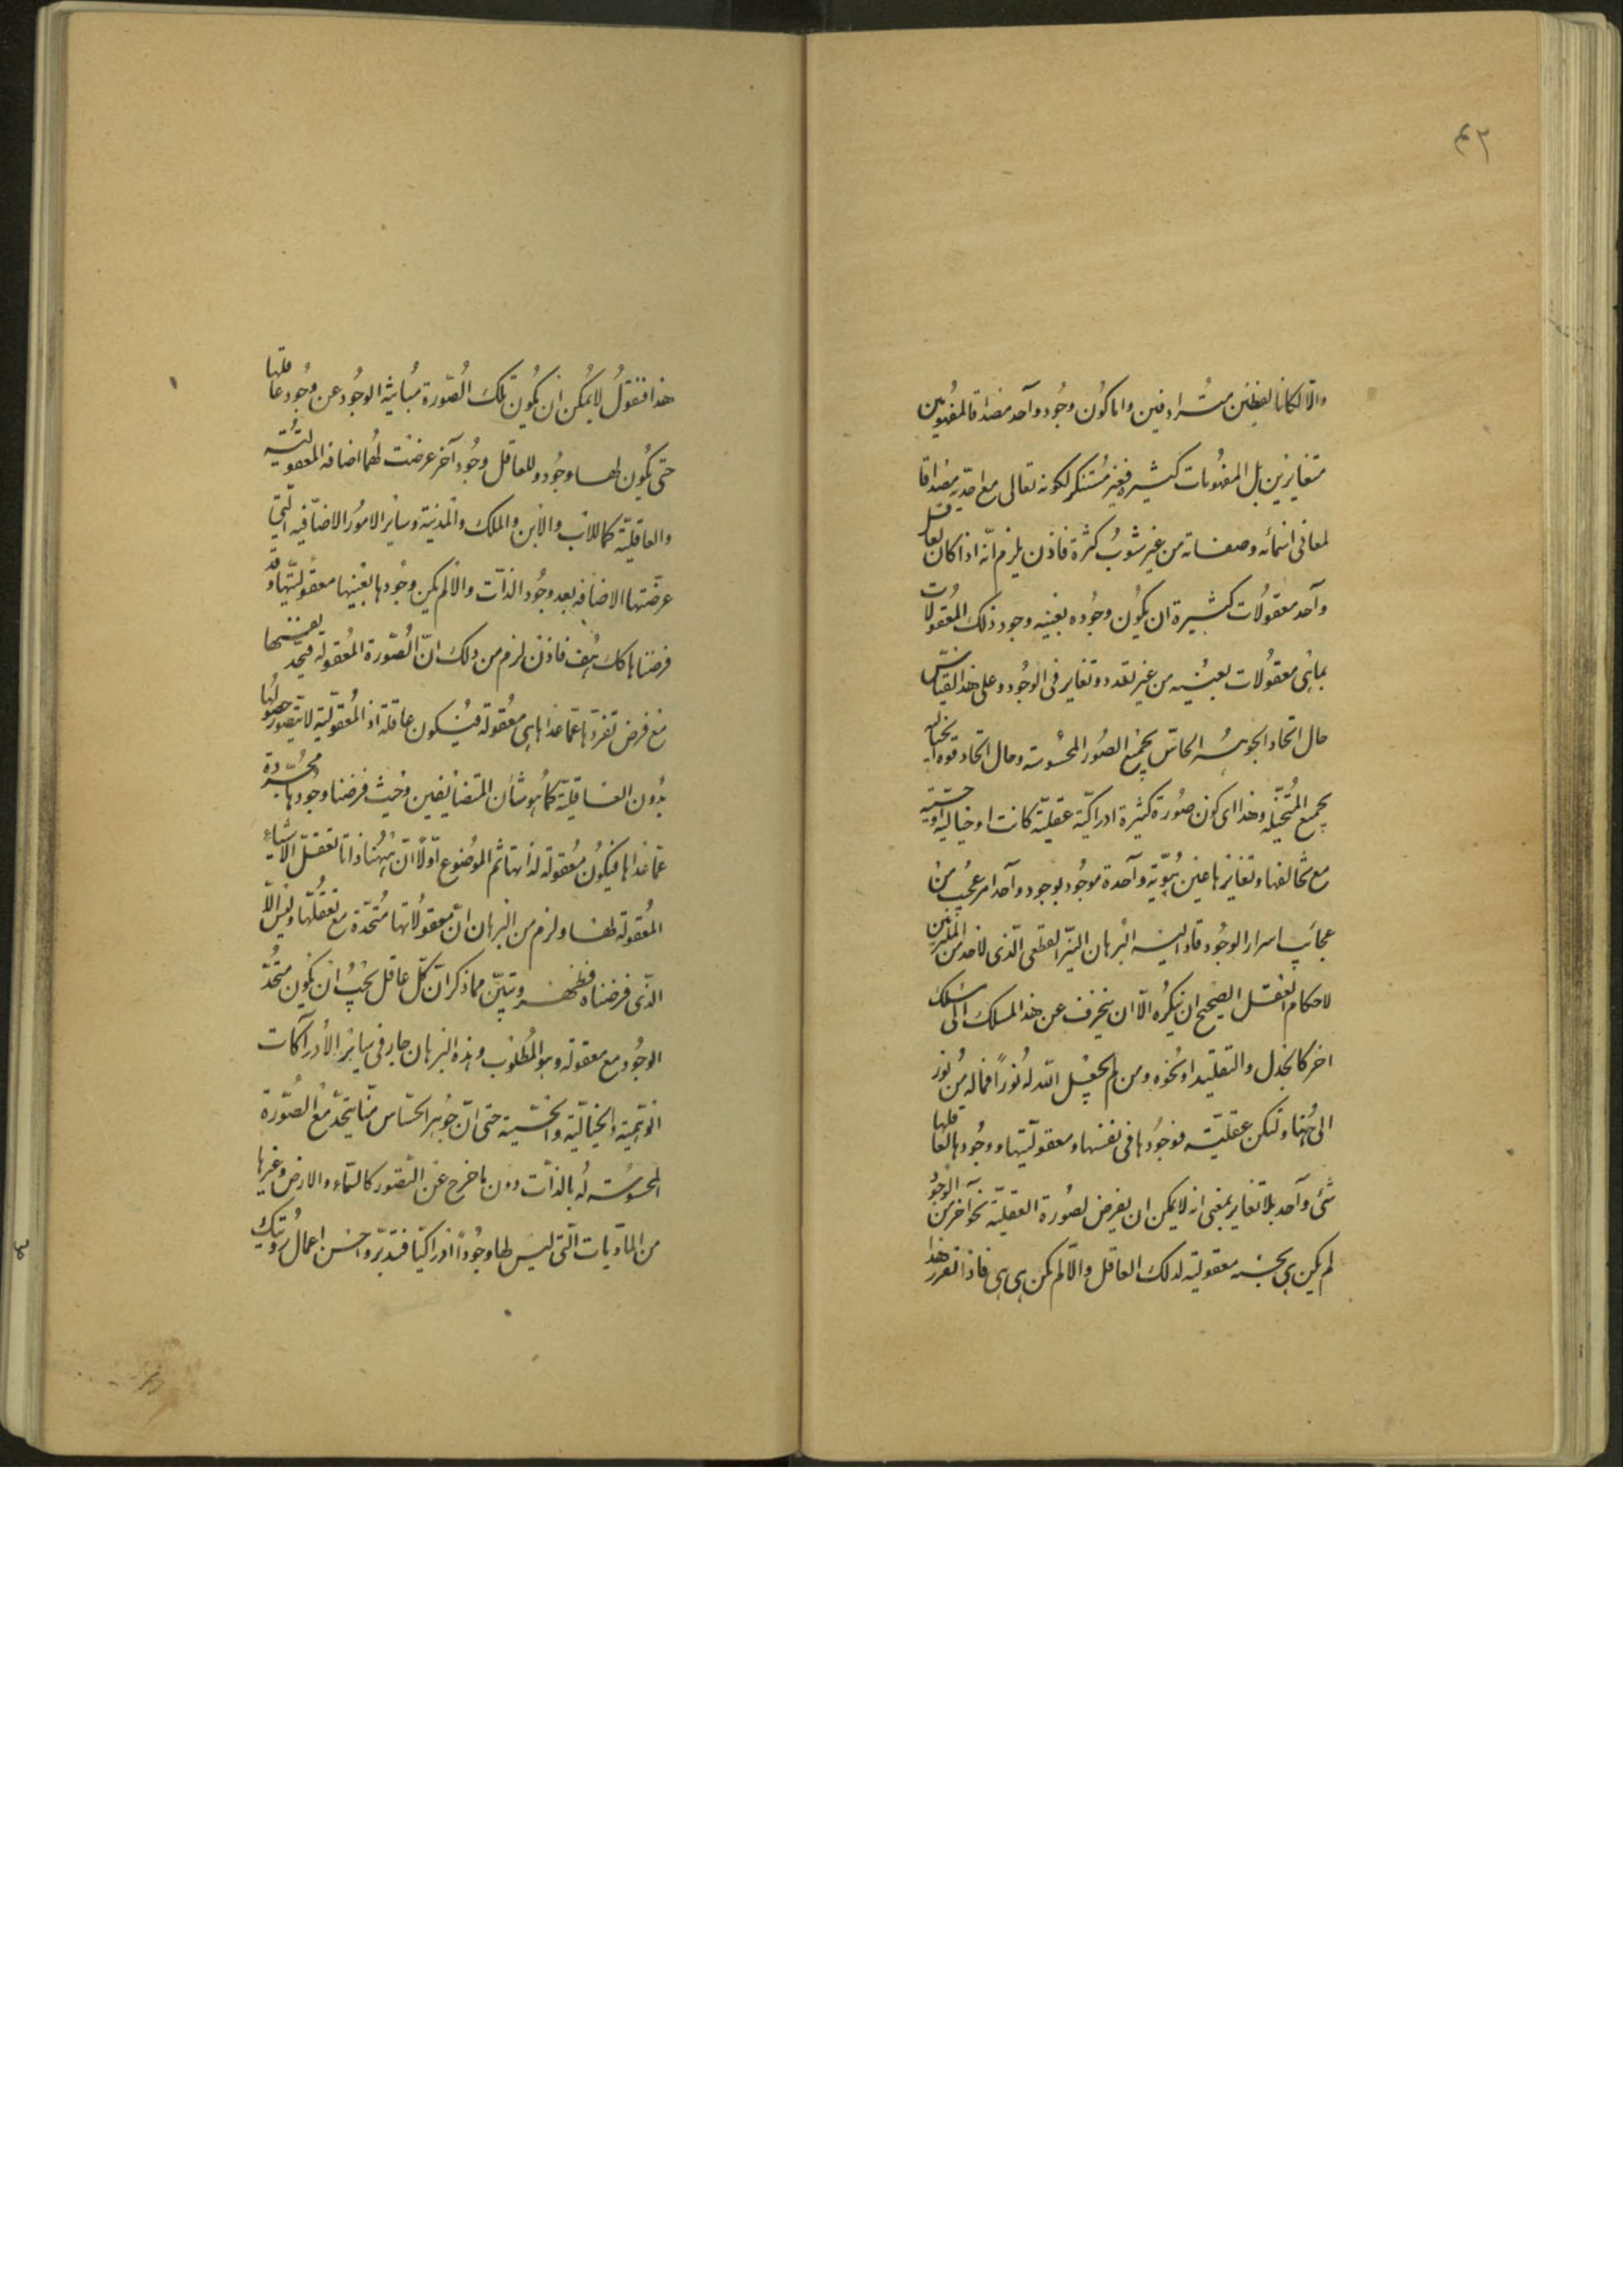 ٤٢
والّا لكانا لفظين مترادفين واما كون وجود واحد مصداقا لمفهومين
متغايرين بل المفهومات كثيرة فغير مستنكر لكونه تعالى مع احديته مصداقا
لمعانى اسمائه وصفاته من غير شوب كثرة فاذن يلزم انّه اذا كان لعاقل
واحد معقولات كثيرة ان يكون وجوده بعينه وجود ذلك المعقولات
بما هى معقولات بعينه من غير تعدد وتغاير فى الوجود وعلى هذا القياس
حال اتحاد الجوهر الحاسّ بجميع الصور المحسوسة وحال اتحاد قوه الخيالية
بجميع المتخيله وهذا اى كون صورة كثيرة ادراكيّة عقليّة كانت او خياليه او حسّيّة
مع تخالفها وتغايرها عين هويّة واحدة موجود بوجود واحد امر عجيب من
عجائب اسرار الوجود قاد اليه البرهان النيّر القطعى الّذى لاحد من
لاحكام العقل الصحيح ان ينكره الّا ان ينحرف عن هذا المسلك الى مسلك
اخر كالجدل والتقليد او نحوه ومن لم يجعل الله له نورًا فماله من نور
الى هنا ولكن عقليّة فوجودها فى نفسها ومعقوليّتها ووجودها لعاقلها
شئ واحد بلا تغاير بمعنى انه لا يمكن ان يفرض لصورة العقليّة نحو آخر من الوجود
لم يكن هى بحسبه معقولية لذلك العاقل والّا لم تكن هى هى فاذا تقرر هذا
هذا فنقول لا يمكن ان يكون تلك الصّورة مباينة الوجود عن وجود عاقلها
حتى يكون لها وجود وللعاقل وجود آخر عرضت لهما اضافه المعقوليّة
والعاقليّة كما للاب والابن والملك والمدنية وساير الامور الاضافيه الّتى
عرضتها الاضافه بعد وجود الذات والّا لم يكن وجودها بعينها معقوليّتها وقد
فرضناها كك هف فاذن لزم من ذلك انّ الصّورة المعقوله فيحد نفسها
مع فرض تفرّدها عمّا عداها هى معقولة فيكون عاقلة اذ المعقوليّة لا يتصور حصولها
بدون العاقليّة كما هو شأن المتضايفين وحيث فرضنا وجودها مجرّدة
عمّا عداها فيكون معقولة لذاتها ثم الموضوع اوّلًا انّ هيهنا ذاتا تعقل الاشياء
المعقولة لها ولزم من البرهان انّ معقولاتها متّحدة مع تعقّلها وليس الّا
الّذى فرضناه فظهر وتبيّن مما ذكر انّ كلّ عاقل يجب ان يكون متّحد
الوجود مع معقوله وهو المطلوب وهذه البرهان جار فى ساير الادراكات
الوهميّة والخياليّة والحسّية حتى انّ جوهر الحسّاس منّا يتحد مع الصّورة
المحسوسة له بالذات دون ما خرج عن التصور كالسّماء والارض وغيرها
من المادّيات الّتى ليس لها وجودًا ادراكيّا فتدبّر واحسن اعمال رويّتك